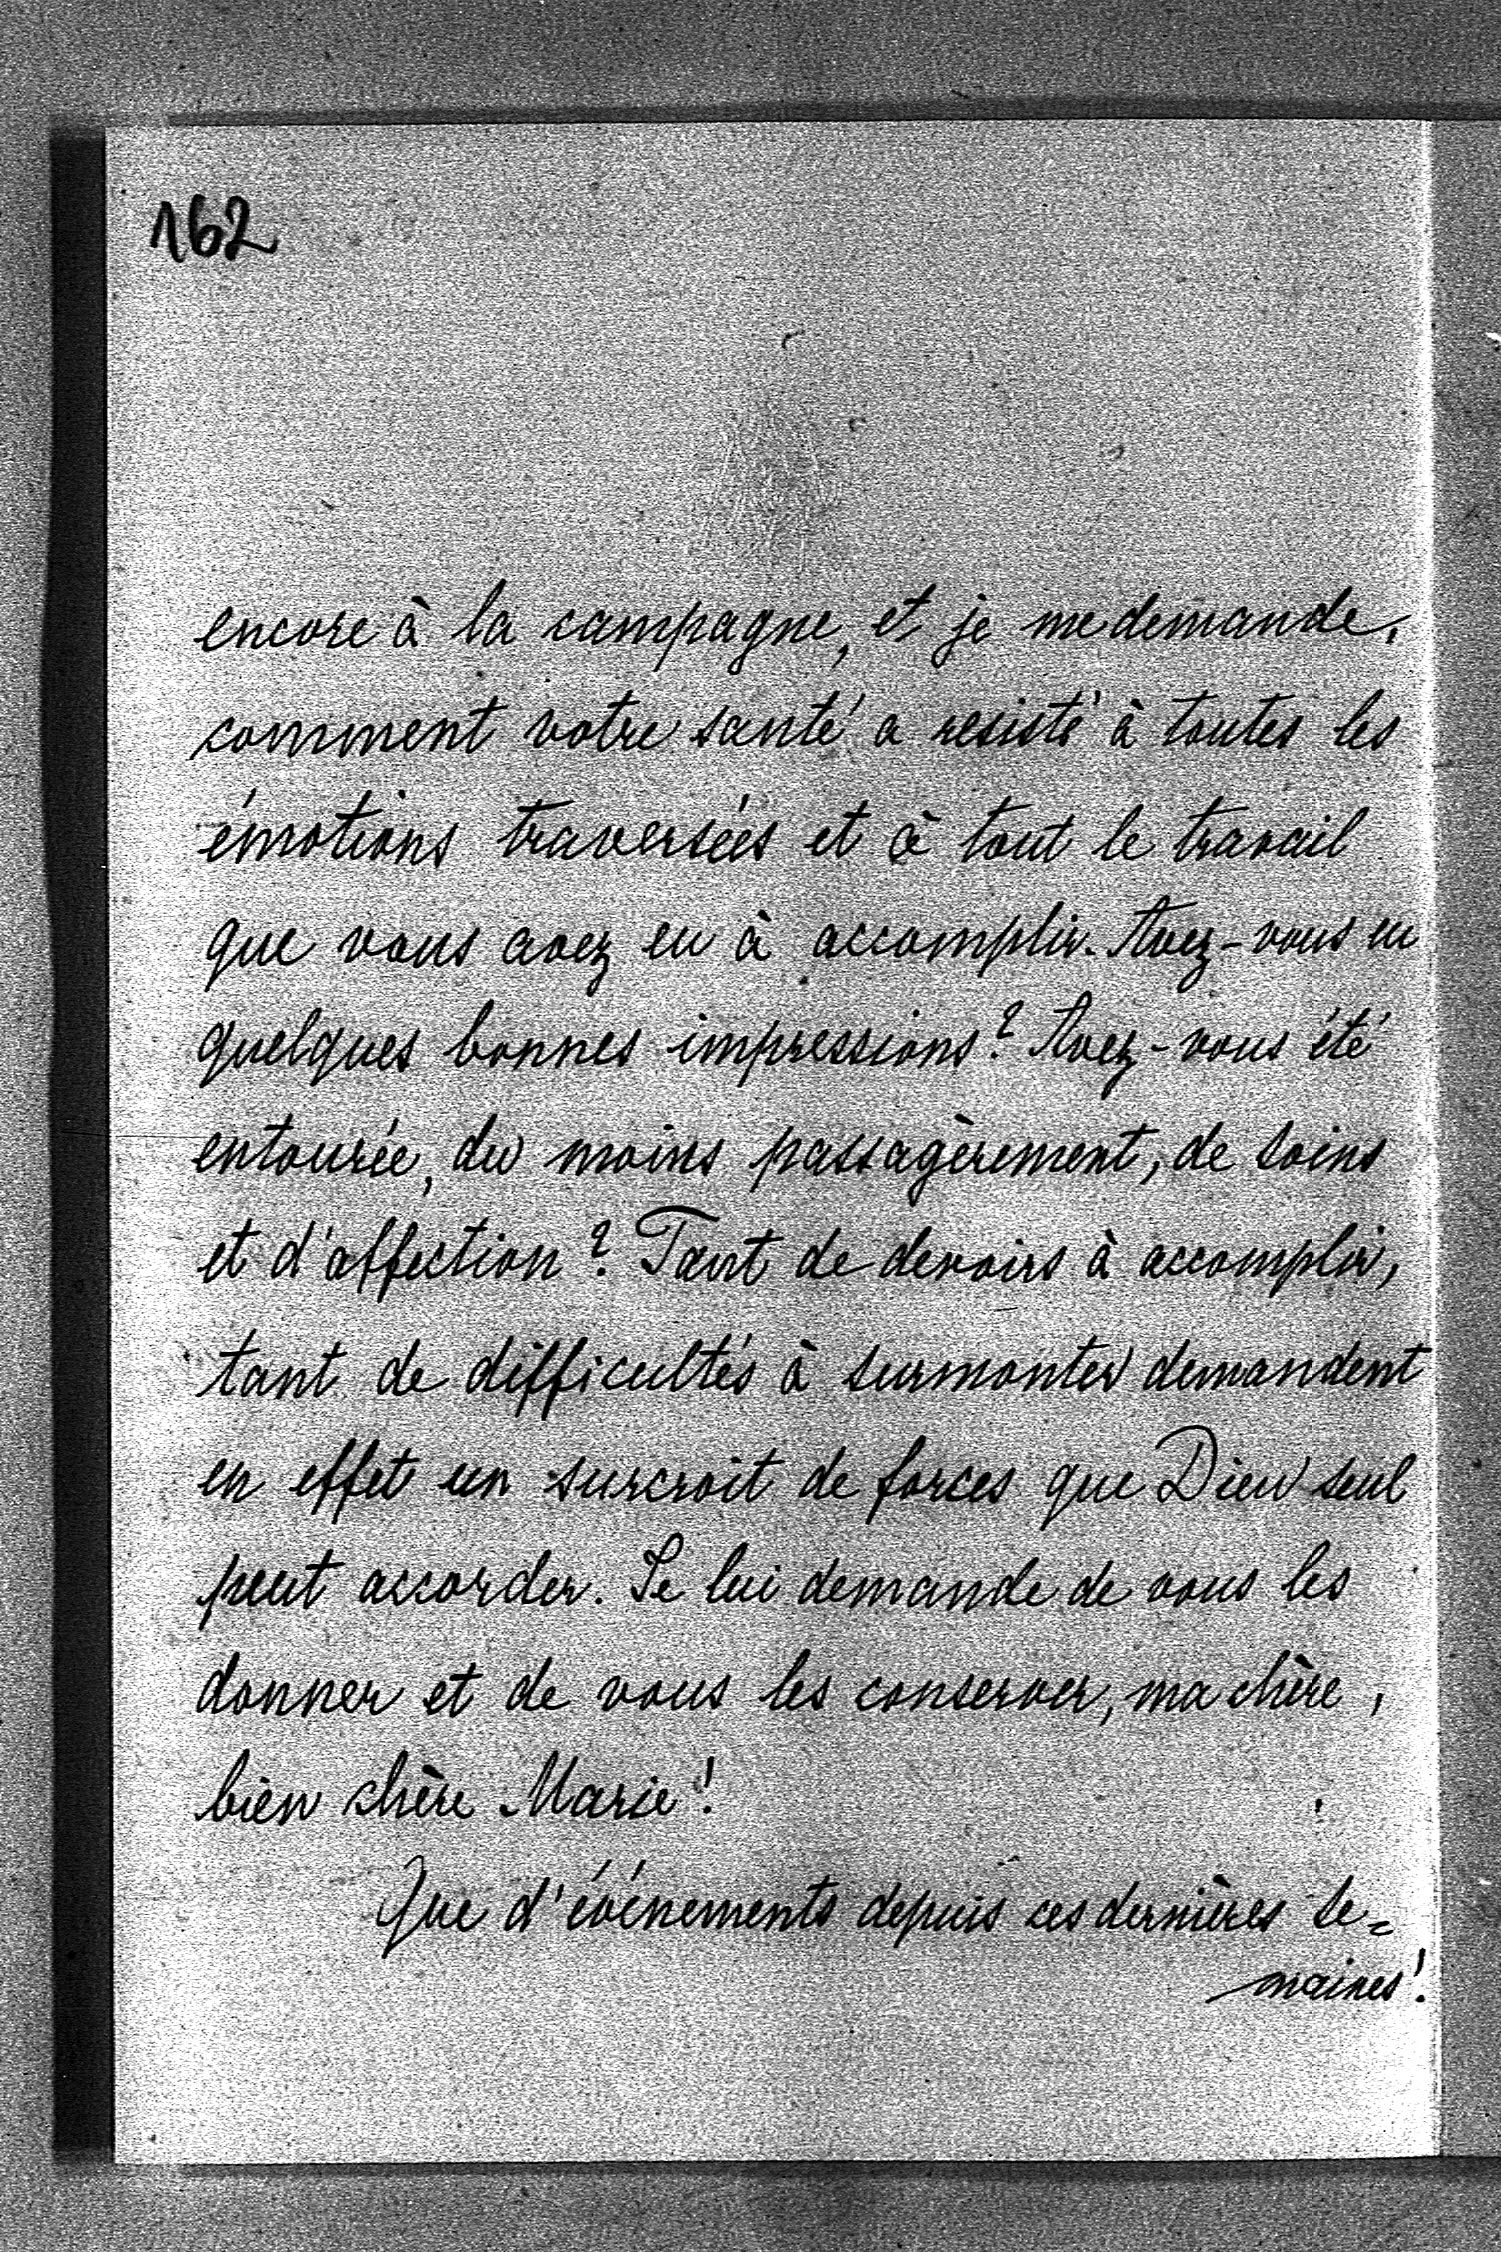 162
encore à la campagne, et je me demande,
comment votre santé a resisté à toutes les
émotions traversées et à tout le travail
que vous avez eu à accomplir. Avez-vous eu
quelques bonnes impressions? Avez-vous été
entourée, du moins passagèrement, de soins
et d'affection? Tant de devoirs à accomplir,
tant de difficultés à surmonter demandent
en effet un surcroit de forces que Dieu seul
peut accorder. Je lui demande de vous les
donner et de vous les conserver, ma chère,
bien chère Marie!
Que d'événements depuis ces dernières se=
maines!